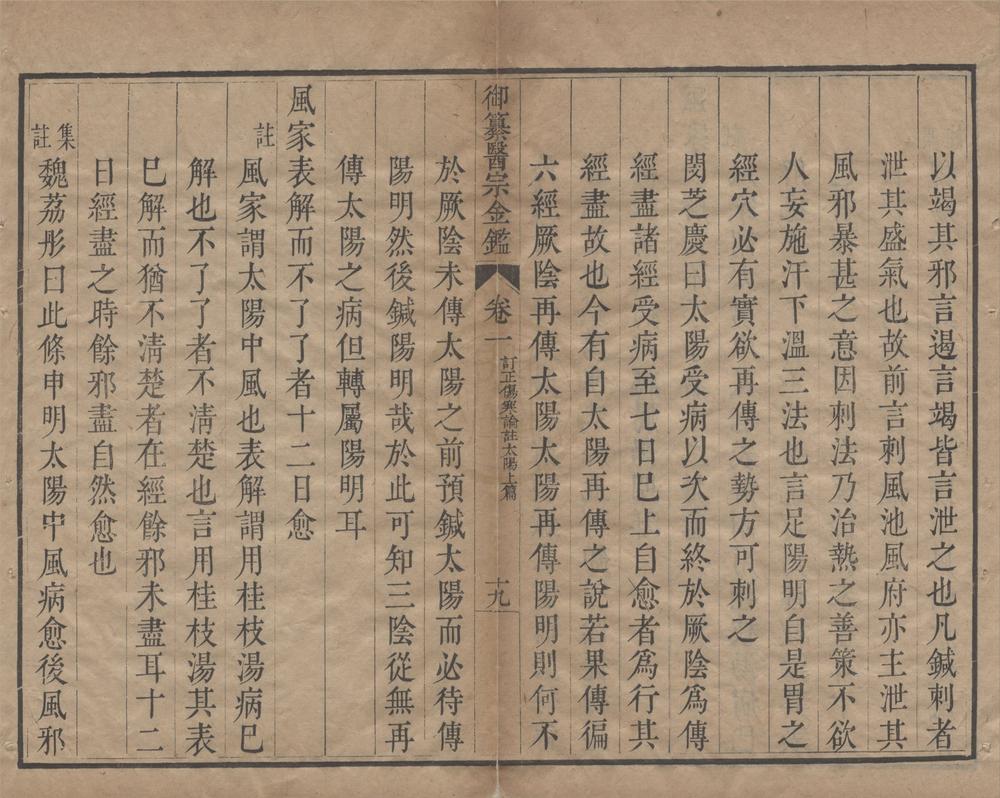 以竭其邪言遏言竭皆言泄之也凡鍼刺者
泄其盛氣也故前言刺風池風府亦主泄其
風邪暴甚之意因刺法乃治熱之善策不欲
人妄施汗下溫三法也言足陽明自是胃之
經穴必有實欲再傳之勢方可刺之
閔芝慶曰太陽受病以次而終於厥陰爲傳
經盡諸經受病至七日已上自愈者爲行其
經盡故也今有自太陽再傳之說若果傳徧
六經厥陰再傳太陽太陽再傳陽明則何不
御纂醫宗金鑑 卷一 訂正傷寒論註太陽上篇 十九
於厥陰未傳太陽之前預鍼太陽而必待傳
陽明然後鍼陽明哉於此可知三陰從無再
傳太陽之病但轉屬陽明耳
風家表解而不了了者十二日愈
註 風家謂太陽中風也表解謂用桂枝湯病巳
解也不了了者不淸楚也言用桂枝湯其表
巳解而猶不淸楚者在經餘邪未盡耳十二
日經盡之時餘邪盡自然愈也
集註 魏荔彤曰此條申明太陽中風病愈後風邪